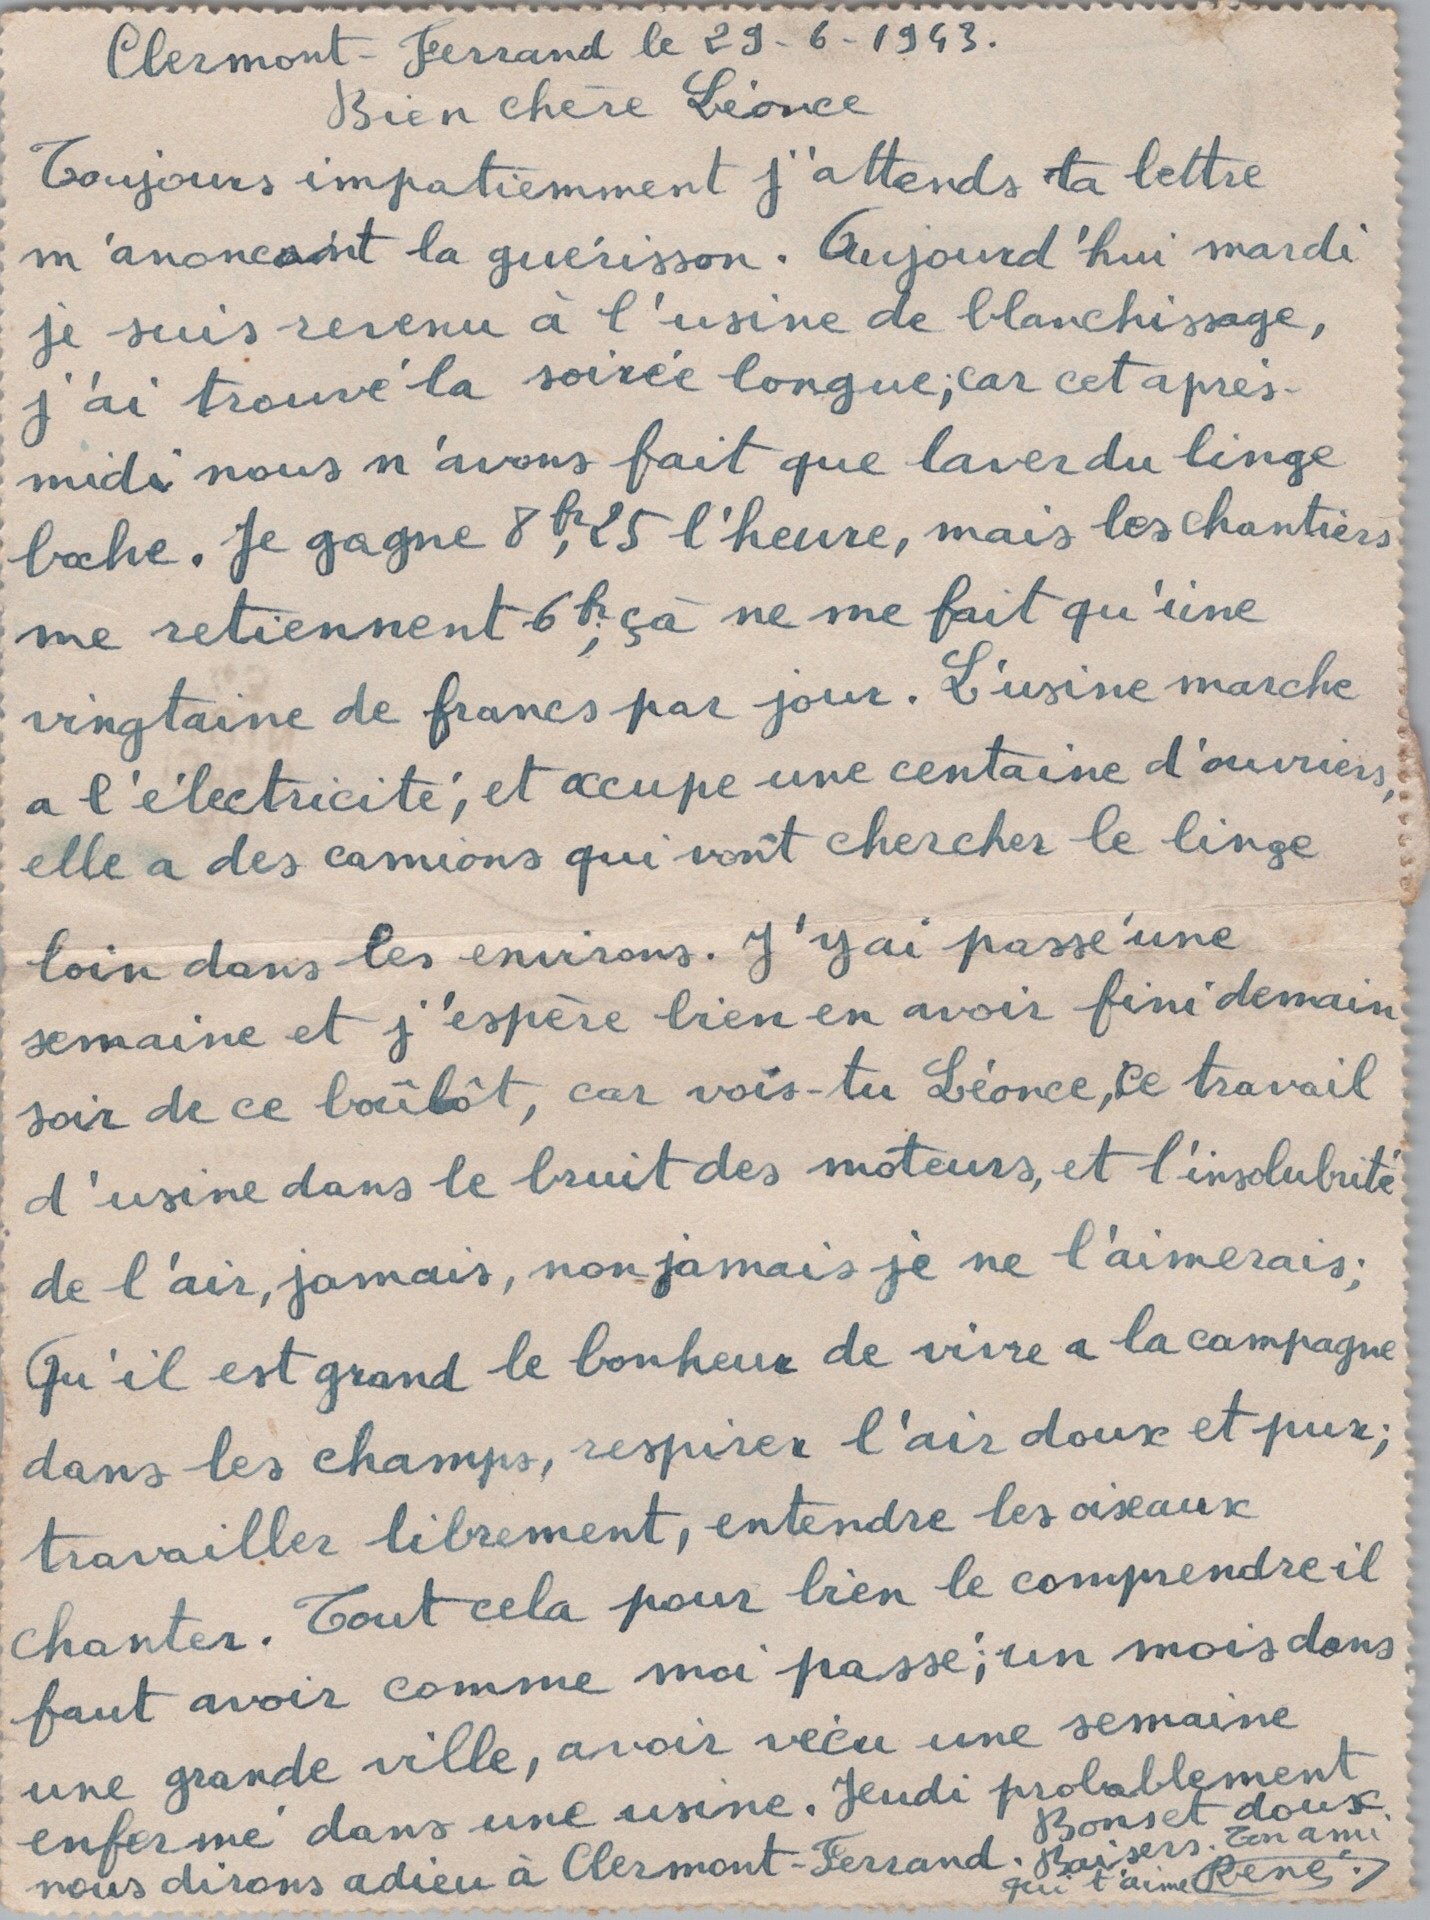 Clermont-Ferrand le 29-6-1943.
Bien chère Léonce
Toujours impatiemment j'attends ta lettre
m'anoncant la guérisson. Aujourd'hui mardi
je suis revenu à l'usine de blanchissage,
j'ai trouvé la soirée longue; car cet après-
midi nous n'avons fait que laver du linge
boche. Je gagne 8fr,25 l'heure, mais les chantiers
me retiennent 6fr; çà ne me fait qu'une
vingtaine de francs par jour. L'usine marche
a l'électricité, et occupe une centaine d'ouvriers,
elle a des camions qui vont chercher le linge
loin dans les environs. J'y ai passé une
semaine et j'espère bien en avoir fini demain
soir de ce boûlôt, car vois-tu Léonce, ce travail
d'usine dans le bruit des moteurs, et l'insolubrité
de l'air, jamais, non jamais je ne l'aimerais;
Qu'il est grand le bonheur de vivre a la campagne
dans les champs, respirer l'air doux et pur;
travailler librement, entendre les oiseaux
chanter. Tout cela pour bien le comprendre il
faut avoir comme moi passé; un mois dans
une grande ville, avoir vécu une semaine
enfermé dans une usine. Jeudi probablement
nous dirons adieu à Clermont-Ferrand. Bons et doux
Baisers. Ton ami
qui t'aime René.